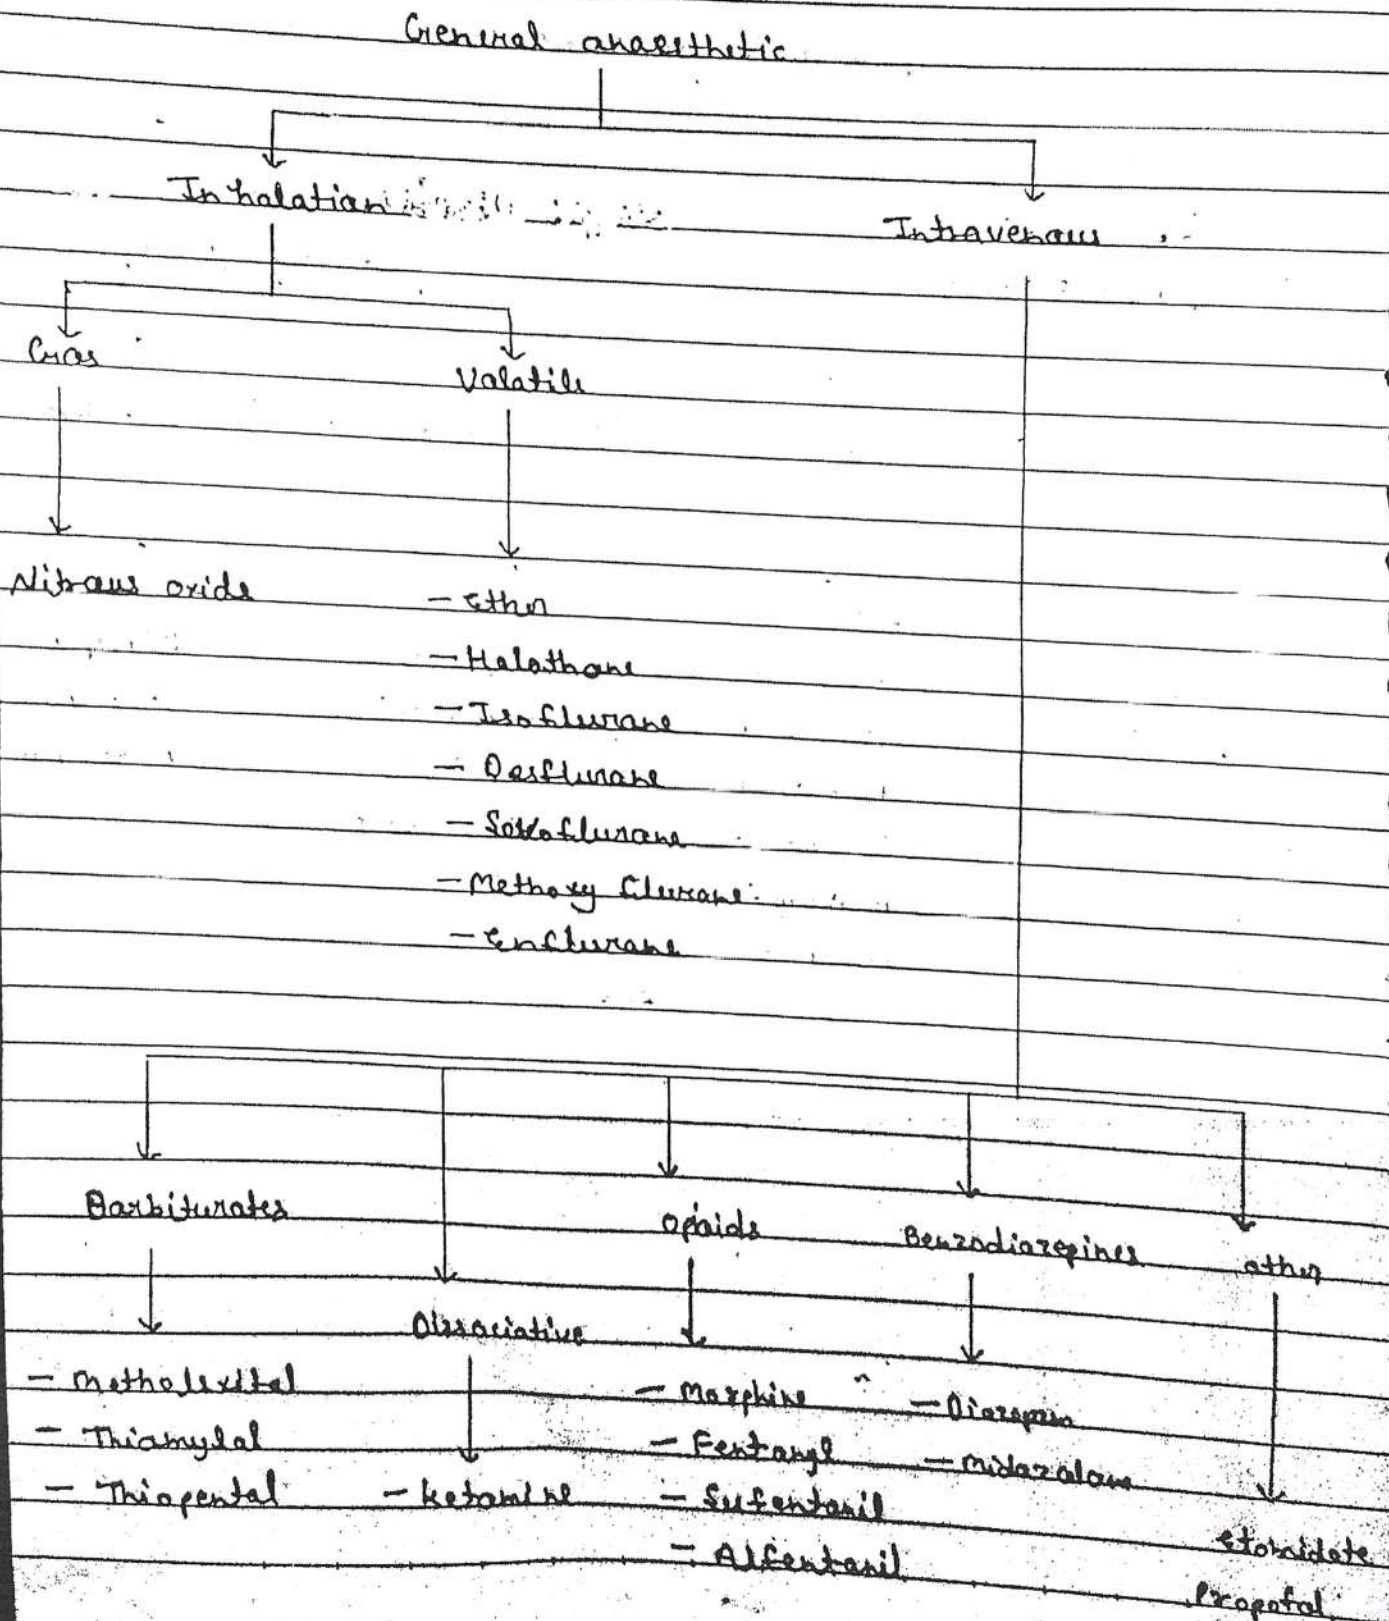 General anaesthetic
Inhalation
Intravenous
Gas
Volatile
Nitrous oxide
- Ether
- Halothane
- Isoflurane
- Desflurane
- Sevoflurane
- Methoxy flurane
- Enflurane
Barbiturates
Opioids
Benzodiazepines
other
Dissociative
- Methohexital
- Thiamylal
- Thiopental
- ketamine
- Morphine
- Fentanyl
- Sufentanil
- Alfentanil
- Diazepam
- Midazolam
etomidate
Propofol